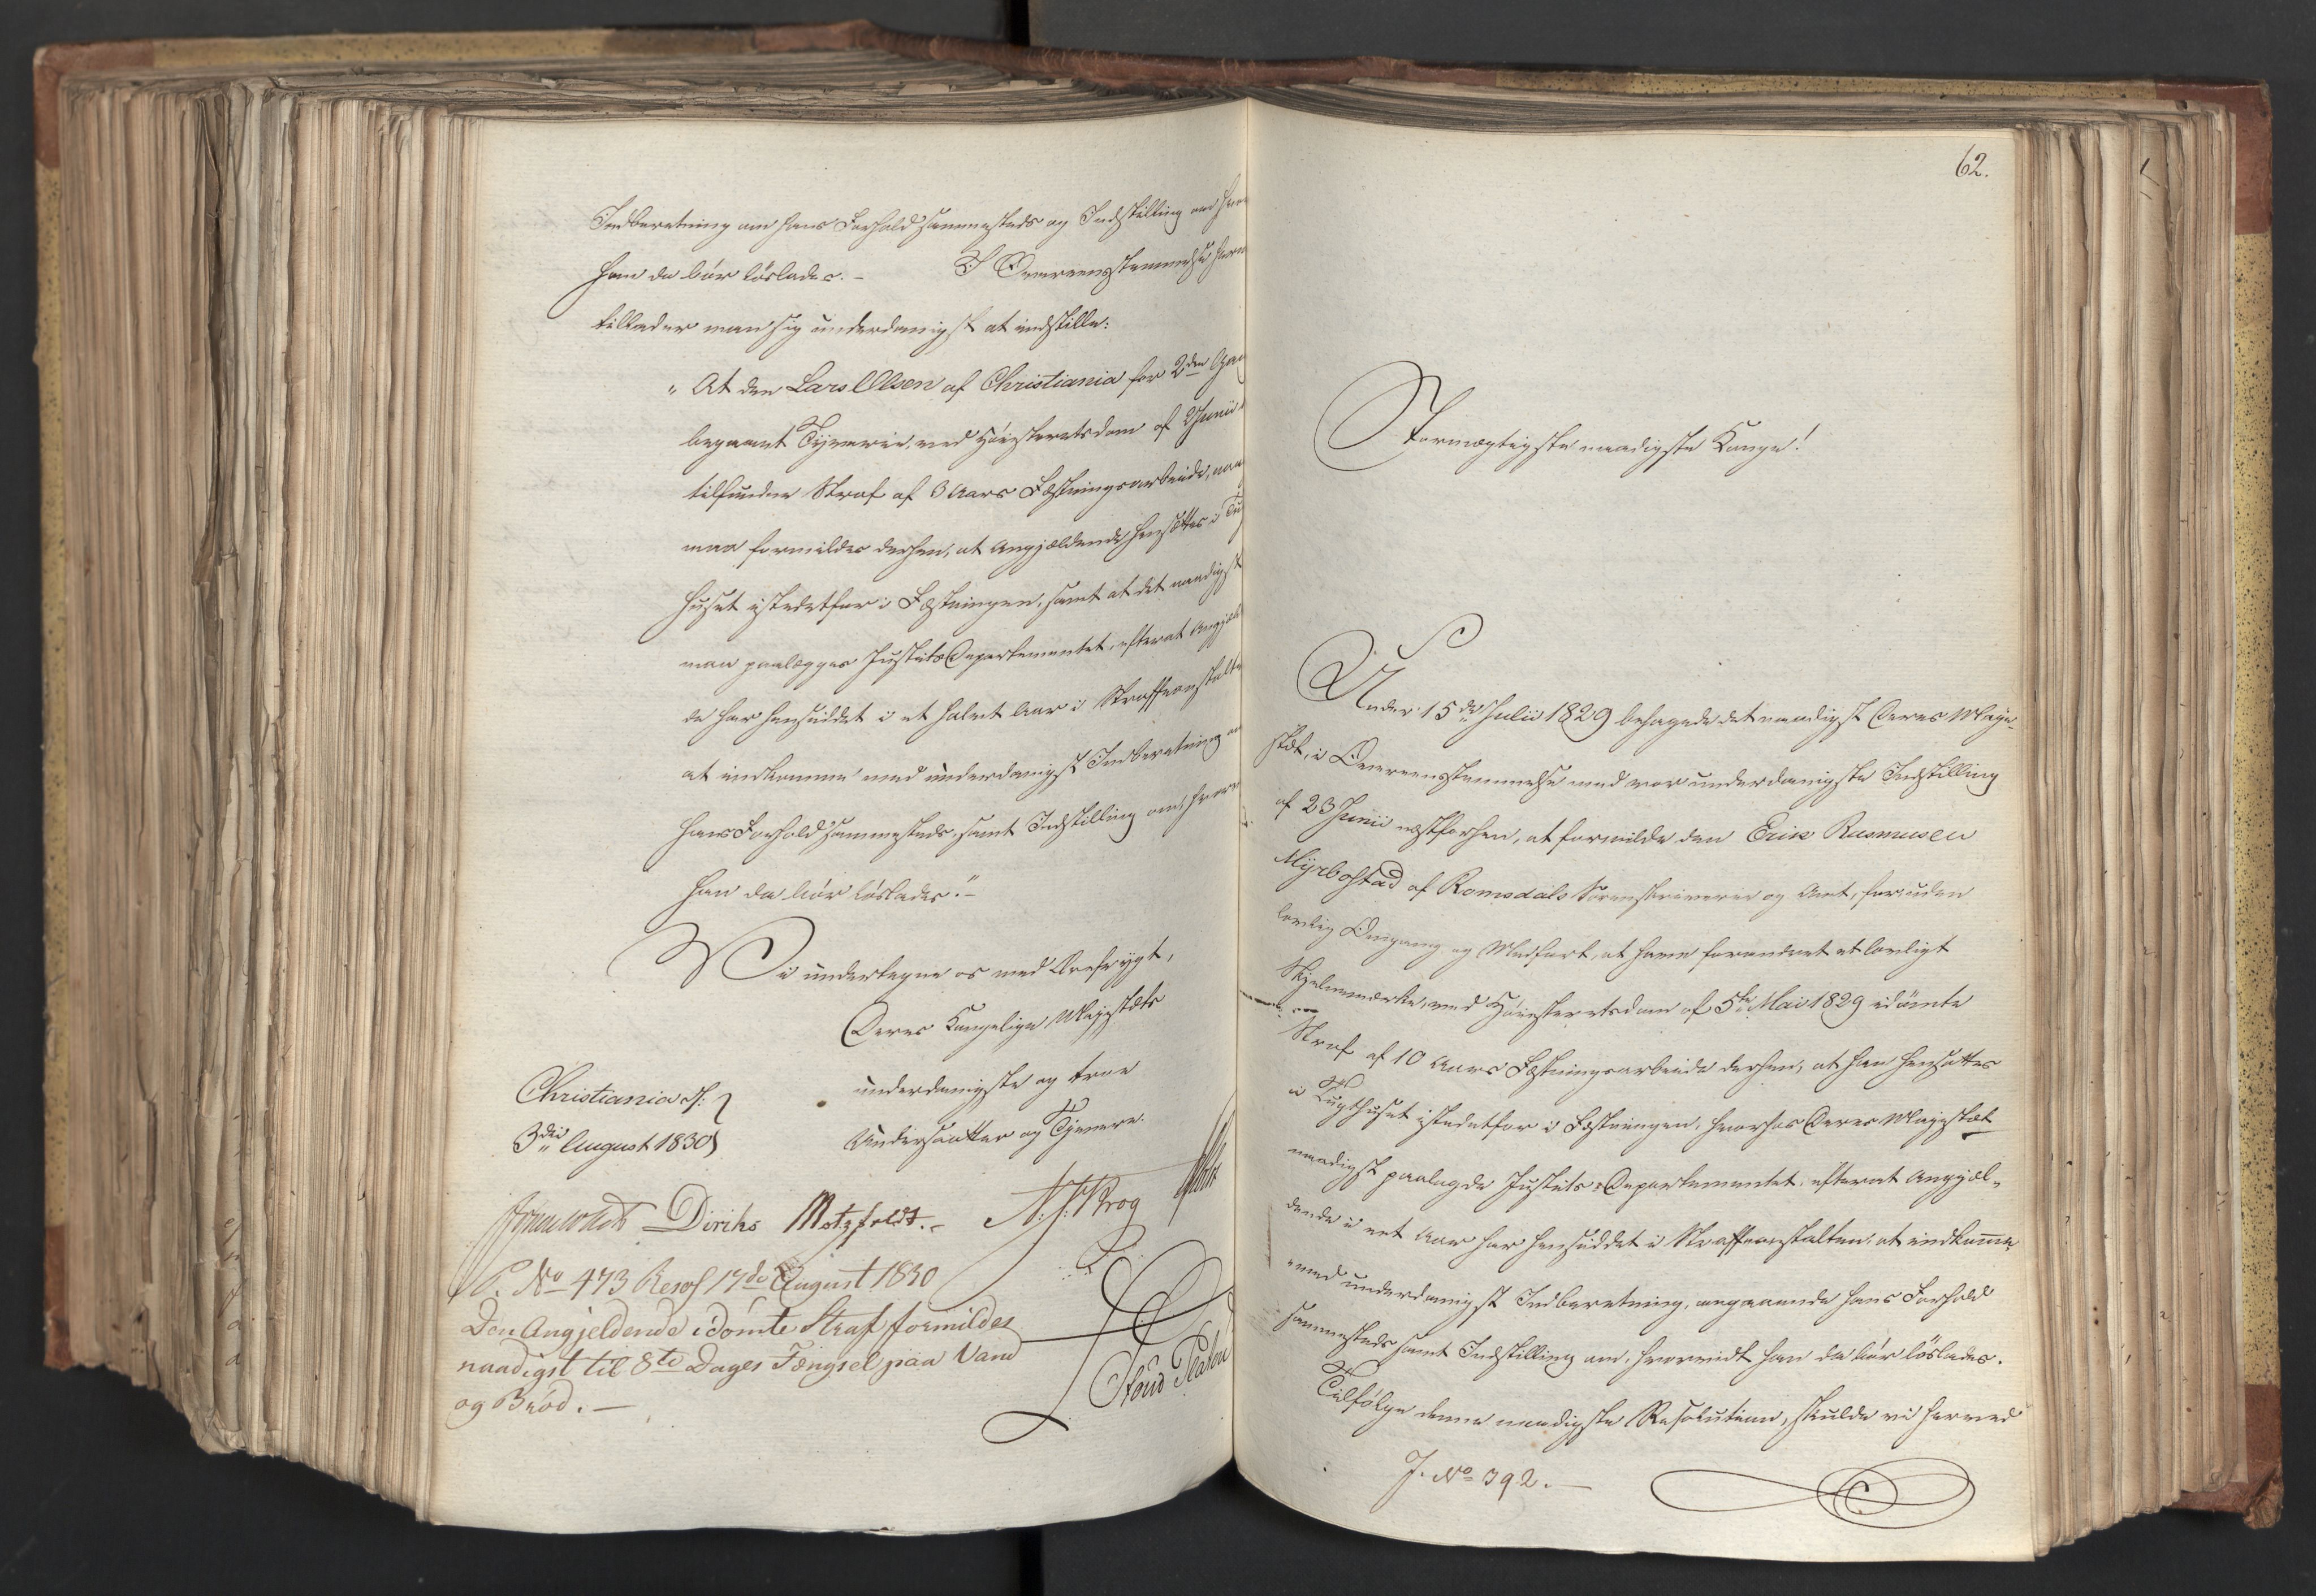 Indberetning om hans Forhold sammesteds og Indstilling om hvor
han da bør løslades. — I Overeensstemmelse herm
tillader man sig underdanigst at indstille:
"At den Lars Olsen af Christiania for 2den Gan
begaaet Tyverie, ved Høiesteretsdom af Junii
tilfundne Straf af 3 Aars Fæstningsarbeide, naa
maa formildes derhen, at Angjældende hensættes i Tug
huset istedetfor i Fæstningen, samt at det naadigst
maa paalægges Justits Departementet, efterat Angjæl
de har hensiddet i et halvt Aar i Straffeanstalte
at indkomme med underdanigst Indberetning om
hans Forhold sammesteds, samt Indstilling om, hvor
han da bør løslades."—
Vi undertegne os med Ærefrygt,
Deres Kongelige Majestæts
underdanigste og troe
Undersaatter og Tjenere.
Christiania d:
3die August 1830
Diriks Motzfeldt.- N: J: Krog
P. No 473 Resol 17de August 1830
Den Angjeldende idömte Straf formildes
naadigst til 8te Dages Fængsel paa Vand
og Bröd. —
62.
Stormægtigste naadigste Konge!
Under 15de Julii 1829 behagede det naadigst Deres Maje-
stæt, i Overeensstemmelse med vor underdanigste Indstilling
af 23 Junii næstforhen, at formilde den Erik Rasmusen
Myrbostad af Romsdals Sorenskriverie og Amt, for, uden
lovlig Omgang og Medfart, at have forandret et lovligt
Skjelnemærke, ved Høiesteretsdom af 5te Mai 1829 idømte
Straf af 10 Aars Fæstningsarbeide derhen, at han hensattes
i Tugthuset istedetfor i Fæstningen, hvorhos Deres Majestæt
naadigst paalagde Justits-Departementet, efterat Angjæl-
dende i eet Aar har hensiddet i Straffeanstalten, at indkomme
med underdanigst Indberetning, angaaende hans Forhold
sammesteds samt Indstilling om, hvorvidt han da bør løslades.
Tilfølge denne naadigste Resolution, skulde vi herved
J. No 392. —